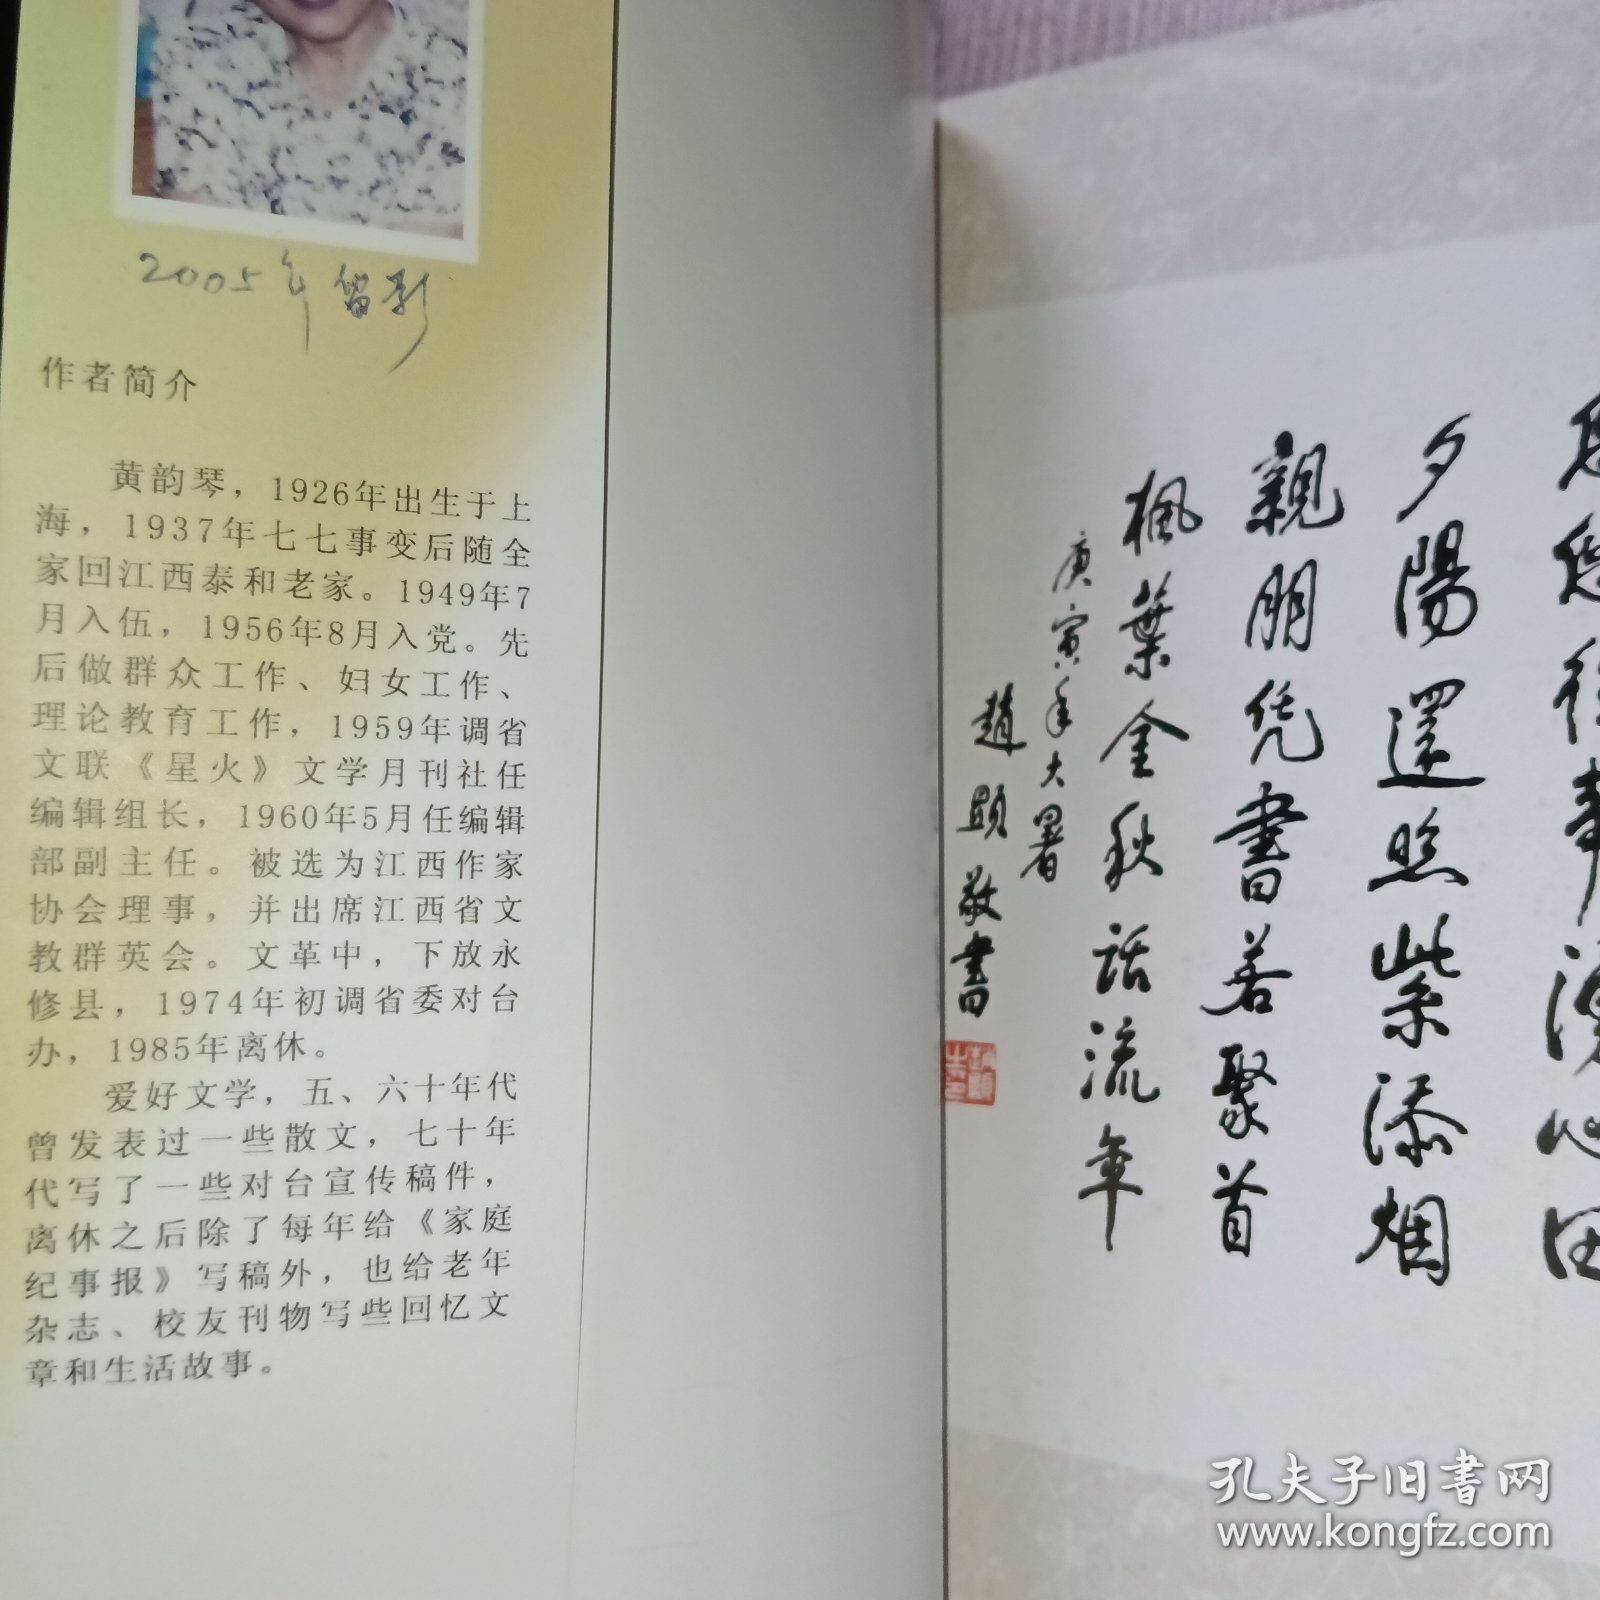 2005年留影
作者简介
黄韵琴，1926年出生于上
海，1937年七七事变后随全
家回江西泰和老家。1949年7
月入伍，1956年8月入党。先
后做群众工作、妇女工作、
理论教育工作，1959年调省
文联《星火》文学月刊社任
编辑组长，1960年5月任编辑
部副主任。被选为江西作家
协会理事，并出席江西省文
教群英会。文革中，下放永
修县，1974年初调省委对台
办，1985年离休。
爱好文学，五、六十年代
曾发表过一些散文，七十年
代写了一些对台宣传稿件，
离休之后除了每年给《家庭
纪事报》写稿外，也给老年
杂志、校友刊物写些回忆文
章和生活故事。
往事湧心田
夕陽還照紫添烟
親朋凭書若聚首
楓葉金秋話流年
庚寅年大暑
趙顯敬書
孔夫子旧书网
www.kongfz.com